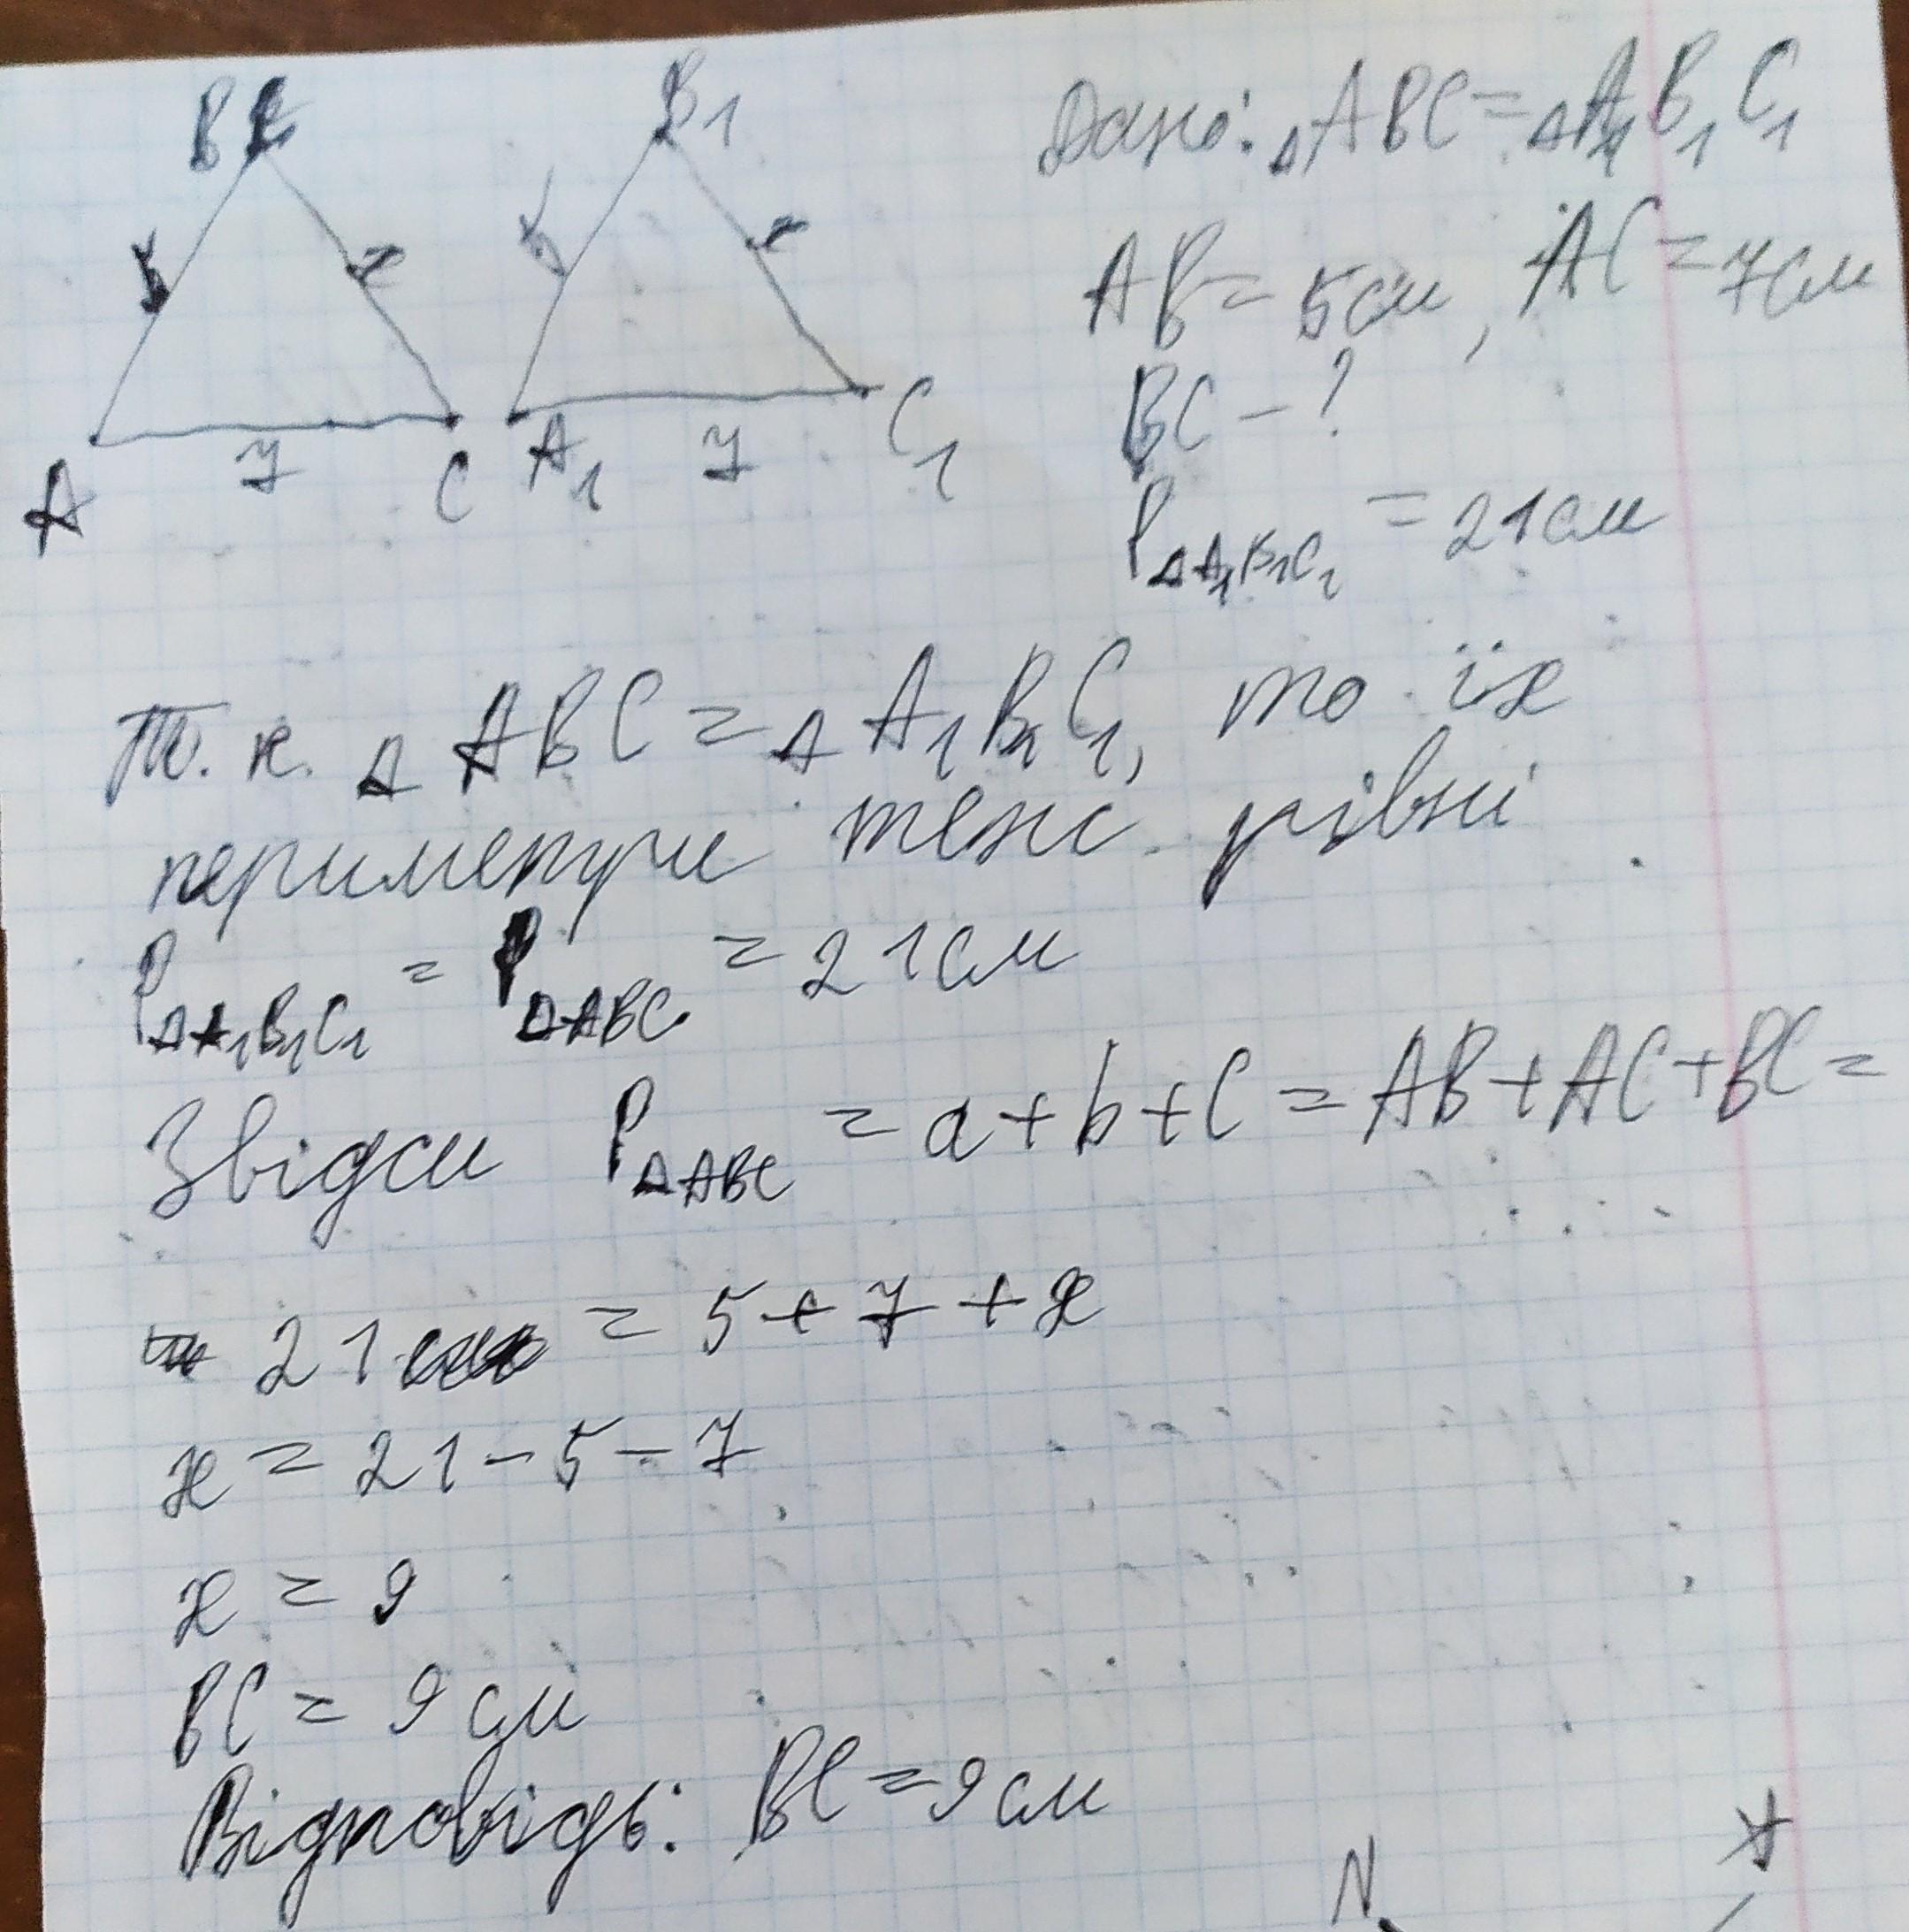 B B1
5 x 5 x
A 7 C A1 7 C1
Дано: △ABC = △A1B1C1
AB = 5см, AC = 7см
BC - ?
P△A1B1C1 = 21см
Т. к. △ABC = △A1B1C1, то їх
периметри теж рівні.
P△A1B1C1 = P△ABC = 21см
Звідси P△ABC = a + b + c = AB + AC + BC =
21 = 5 + 7 + x
x = 21 - 5 - 7
x = 9
BC = 9 см
Відповідь: BC = 9 см
N A